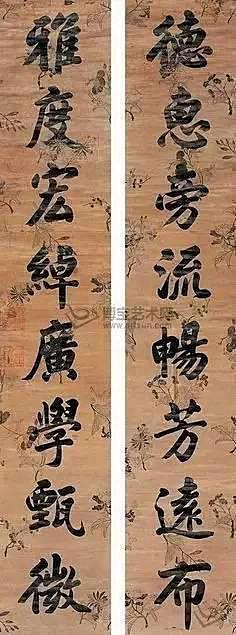 德惠旁流暢芳遠布
雅度宏綽廣學甄微
博宝艺术网